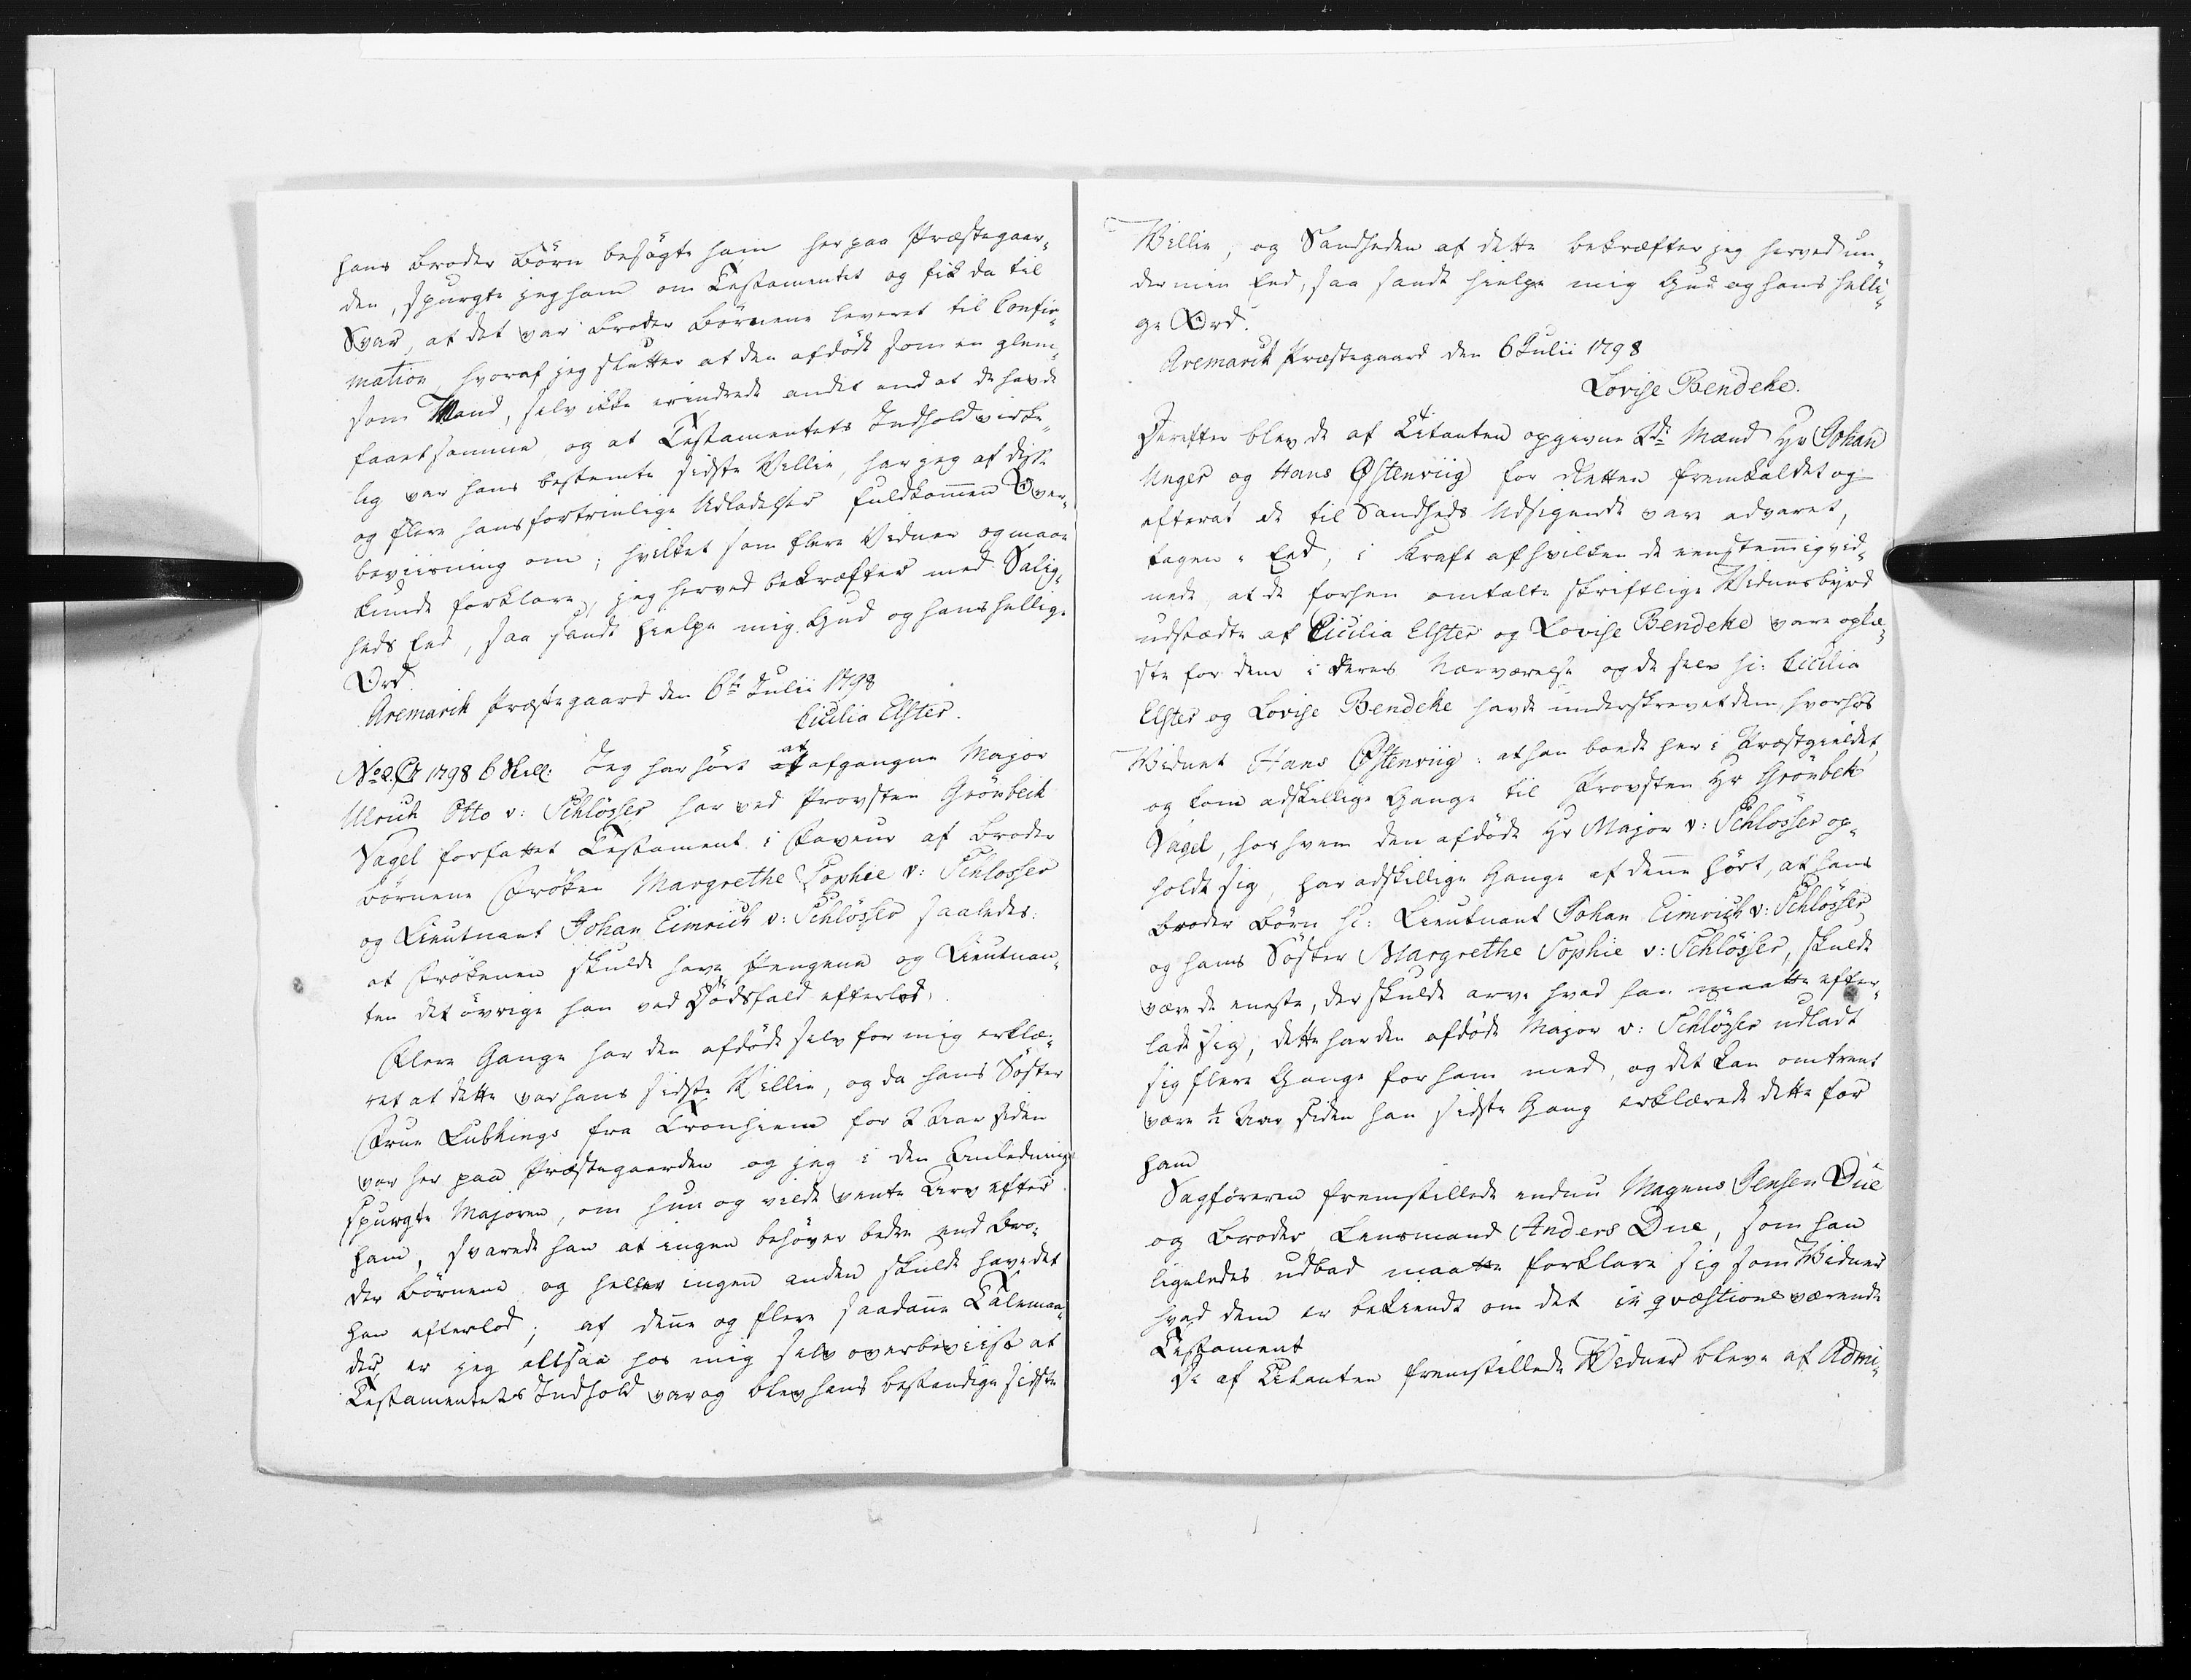 hans Broder Börn besögte ham her paa Præstegaar¬
den, spurgte jeg ham om Testamentet og fik da til
Svar, at det var Broder Börnene leveret til Confir¬
mation, hvoraf jeg slutter at den afdöde som en glem¬
som Mand, selv ikke erindrede andet end at de havde
faaet samme, og at Testamentets Indhold virke¬
lig var hans bestemte sidste Villie, har jeg af disse
og flere hans fortrinlige Udladelser fuldkommen Over¬
beviisning om; hvilket som flere Vidner og maae
kunde forklare, jeg herved bekræfter med Salig¬
heds Eed, saa sandt hielpe mig Gud og hans hellige
Ord.
Aremarck Præstegaard den 6te Julii 1798
Cicilia Elster.
No 2. Ct 1798 6 Skill: Jeg har hört at afgangne Major
Ulrich Otto v: Schlösser har ved Provsten Grönbeck
Sagel forfattet Testament i Faveur af Broder
Börnene Fröken Margrethe Sophie v: Schlosser
og Lieutnant Johan Eimrich v: Schlösser saaledes:
at Frökenen skulde have Pengene og Lieutnan¬
ten det övrige han ved Dödsfald efterlod.
Flere Gange har den afdöde selv for mig erklæ¬
ret at dette var hans sidste Villie, og da hans Söster
Frue Lubkings fra Tronhiem for 2 Aar siden
var her paa Præstegaarden og jeg i den Anledning
spurgte Majoren, om hun og vilde vente Arv efter
ham, svarede han at ingen behöver bedre end Bro¬
der Börnene og heller ingen anden skulde have det
han efterlod; af denne og flere saadanne Talemaa¬
der, er jeg altsaa hos mig selv overbeviist at
Testamentets Indhold var og blev hans bestandige sidste
Villie, og Sandheden af dette bekræfter jeg herved un¬
der min Eed, saa sandt hielpe mig Gud og hans helli¬
ge Ord.
Aremarck Præstegaard den 6 Julii 1798
Lovise Bendeke.
Derefter blev de af Citanten opgivne 2de Mænd Hr Johan
Unger og Hans Östenviig for Retten fremkaldet og
efterat de til Sandheds Udsigende vare advaret,
tagen i Eed, i Kraft af hvilken de eenstemmig vid¬
nede at de forhen omtalte skriftlige Vidnesbyrd
udstædte af Cicilia Elster og Lovise Bendeke vare oplæ¬
ste for dem i deres Nærværelse og de selv sc: Cicilia
Elster og Lovise Bendeke havde underskrevet dem, hvorhos
Vidnet Hans Östenviig: at han boede her i Præstegieldet,
og kom adskillige Gange til Provsten Hr Grönbek
Sagel, hos hvem den afdöde Hr Major v: Schlösser op¬
holdt sig, har adskillige Gange af denne hört, at hans
Broder Börn sc: Lieutnant Johan Eimrich v: Schlösser
og hans Söster Margrethe Sophie v: Schlösser, skulde
være de eneste, der skulde arve hvad han maatte efter¬
lade sig, dette har den afdöde Major v: Schlösser udladt
sig flere Gange for ham med, og det kan omtrent
være ½ Aar siden han sidste Gang erklærede dette for
ham
Sagföreren fremstillede endnu Magnus Jensen Due
og Broder Lensmand Anders Due, som han
ligeledes udbad maatte forklare sig som Vidner
hvad dem er bekiendt om det in qvæstione værende
Testament
De af Citanten fremstillede Vidner bleve af Admi¬